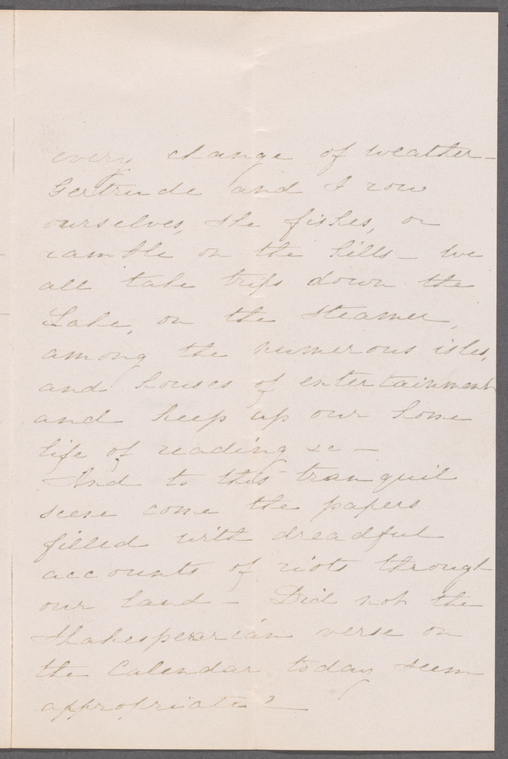 every change of weather -
Gertrude and I row
ourselves, she fishes, or
ramble on the hills - we
all take trips down the
Lake, on the steamer,
among the numerous isles,
and houses of entertainment
and keep up our home
life of reading &c -
And to this tranquil
scene come the papers
filled with dreadful
accounts of riots through
our land - Did not the
Shakespearian verse on
the Calendar today seem
appropriate? -